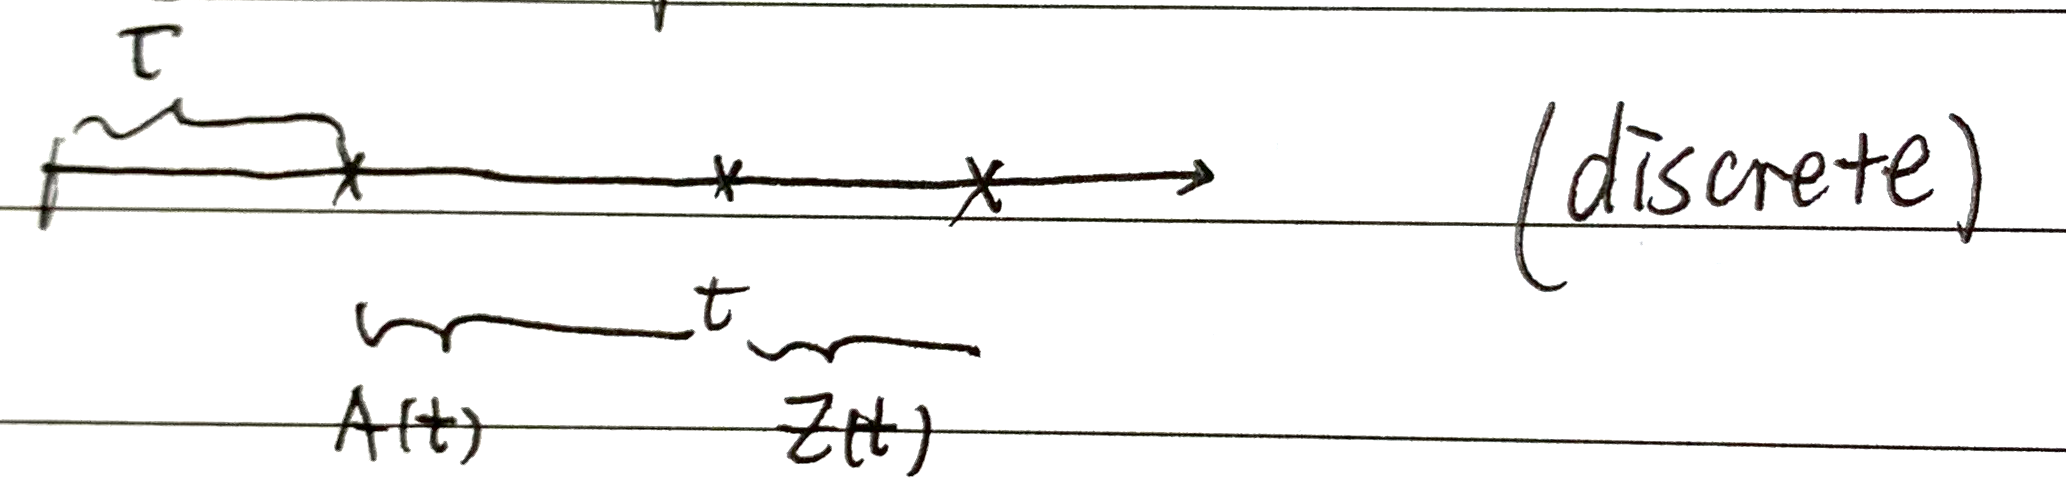 τ
(discrete)
t
A(t) Z(t)